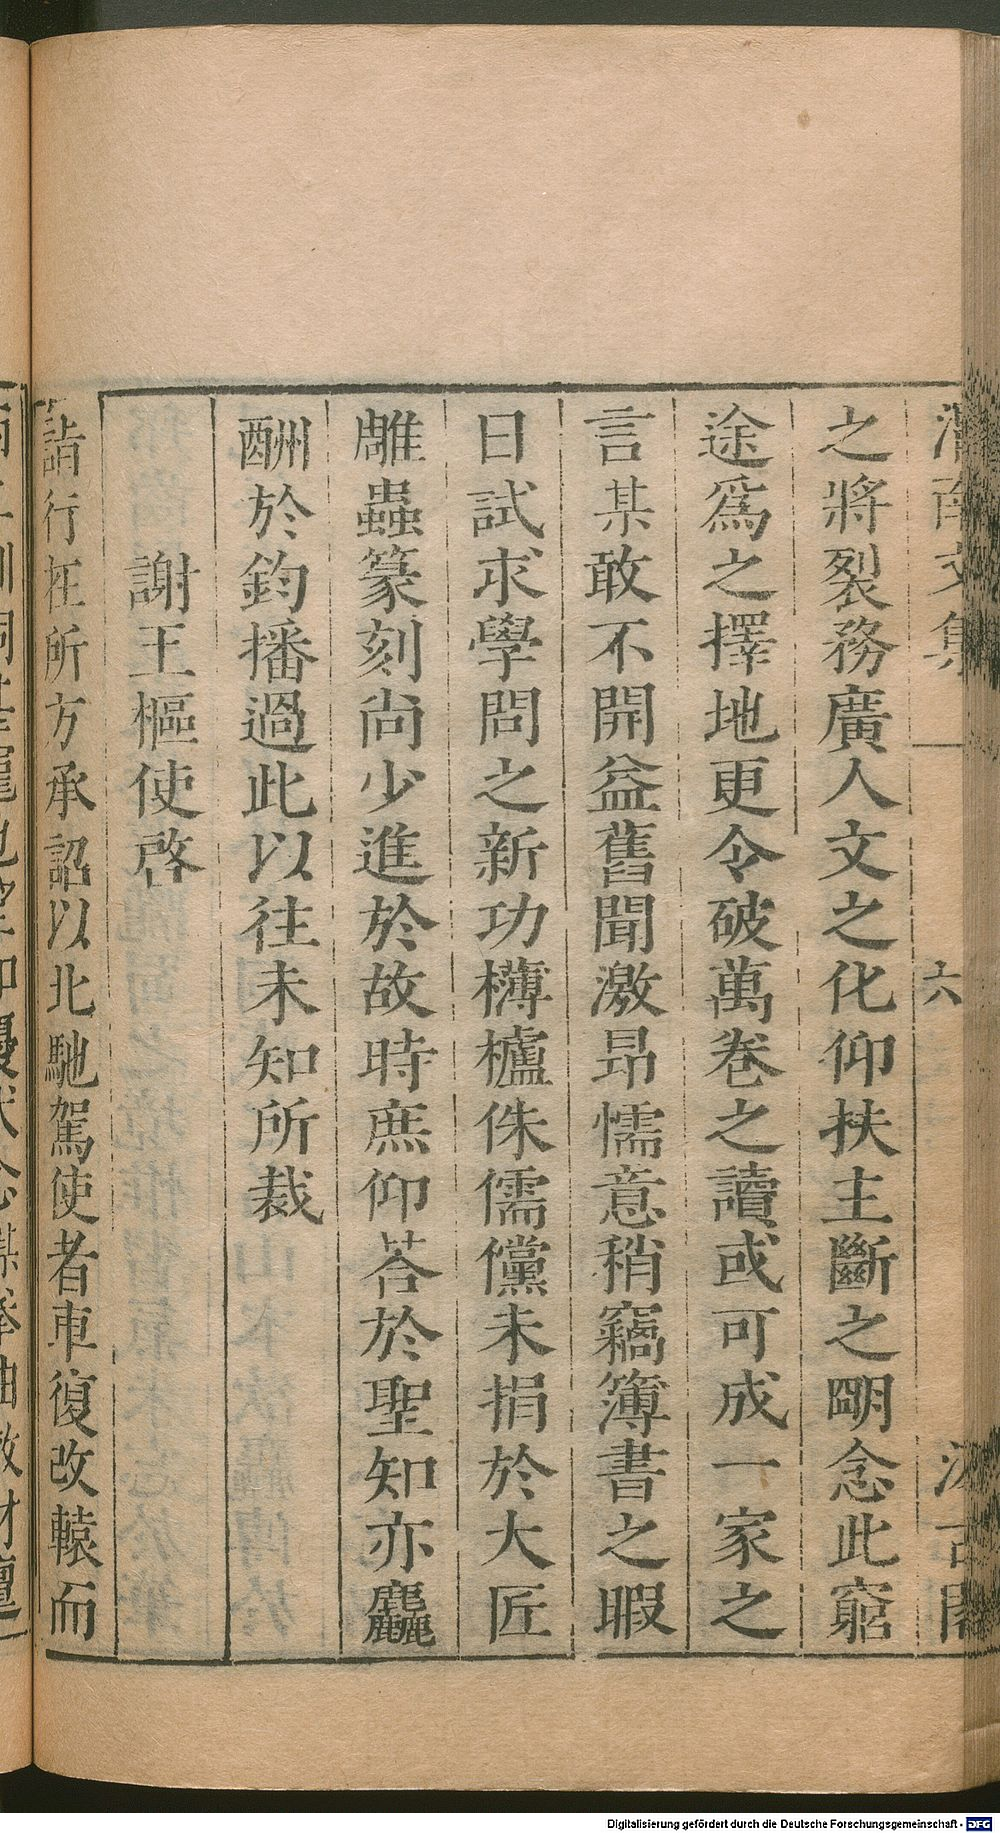 南文集 六 汲古閣
之將裂務廣人文之化仰扶主斷之明念此窮
途爲之擇地更令破萬卷之讀或可成一家之
言某敢不開益舊聞激昂懦意稍竊簿書之暇
日試求學問之新功欂櫨侏儒儻未捐於大匠
雕蟲篆刻尙少進於故時庶仰荅於聖知亦麤
酬於鈞播過此以往未知所裁
謝王樞使啓
詣行在所方承詔以北馳駕使者車復改轅而
Digitalisierung gefördert durch die Deutsche Forschungsgemeinschaft - DFG